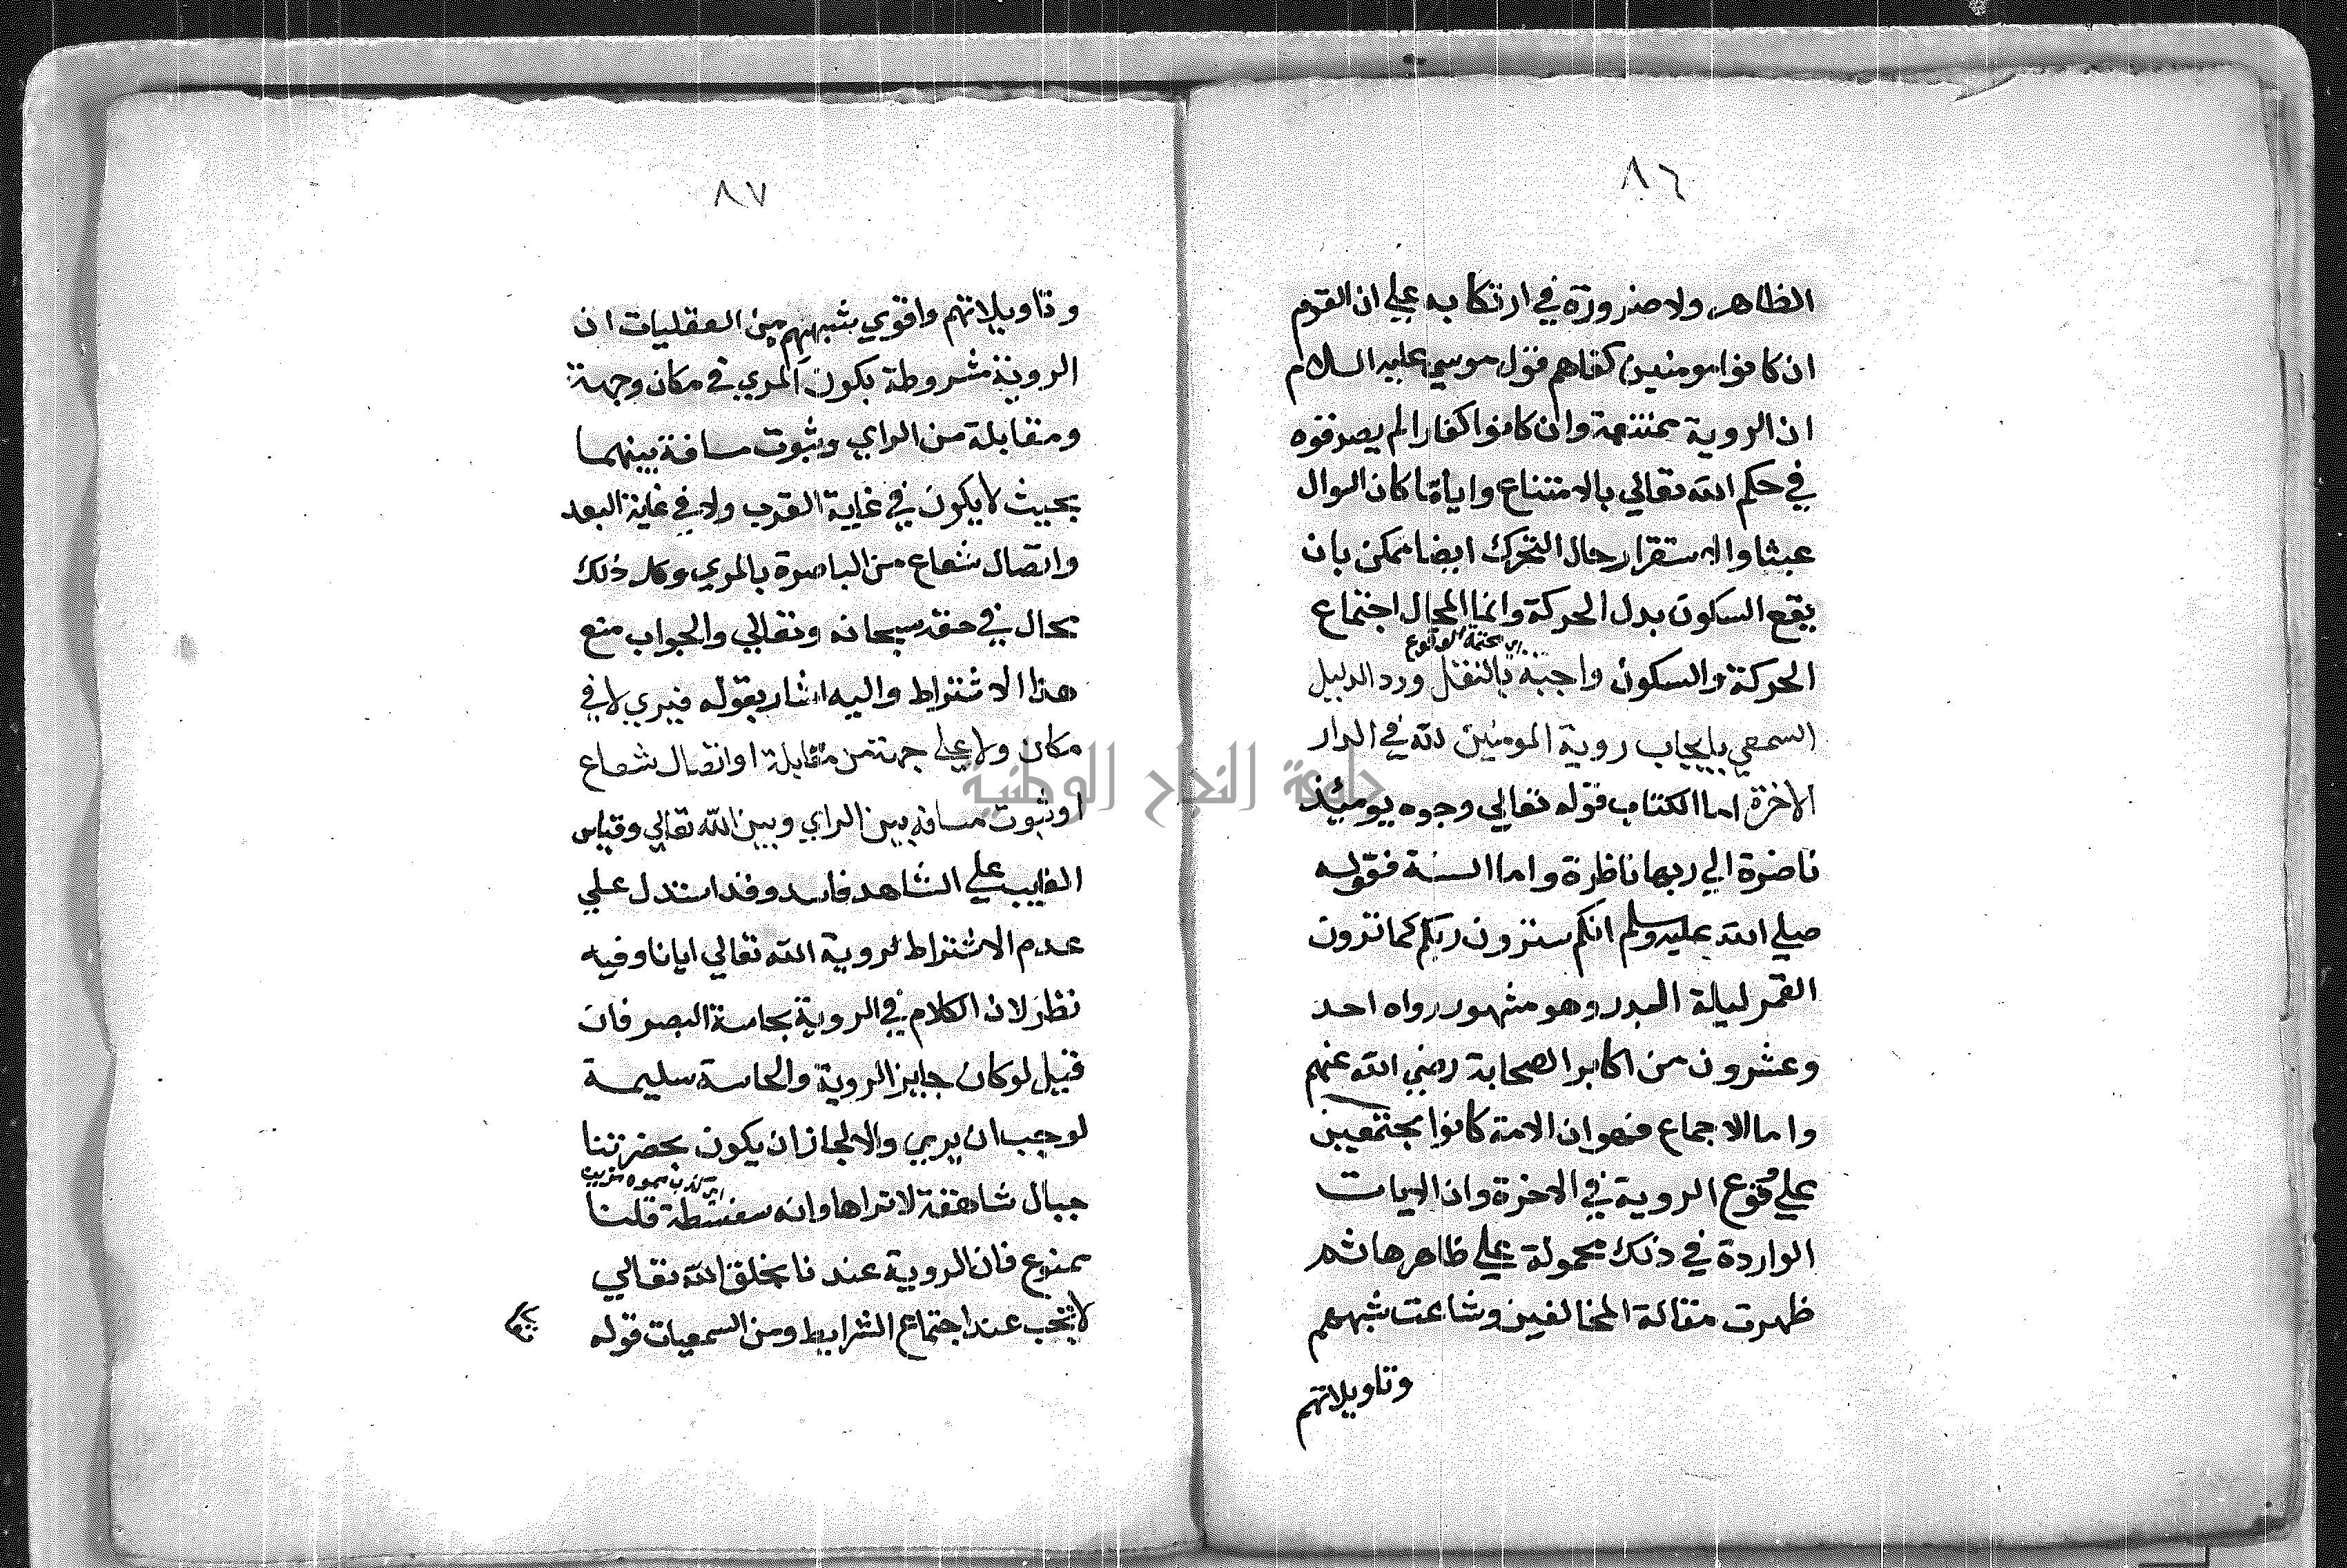 ٨٦
الظاهر ولا ضرورة في ارتكابه علي ان القوم
ان كانوا مومنين كفاهم قول موسي عليه السلام
ان الروية ممتنعة وان كانوا كفارا لم يصدقوه
في حكم الله تعالي بالامتناع واياما كان السوال
عبثا والاستقرار حال التحرك ايضا ممكن بان
يقع السكون بدل الحركة وانما المحال اجتماع
الحركة والسكون واجبة بالنقل ورد الدليل
السمعي بايجاب روية المومنين لله في الدار
الاخرة اما الكتاب قوله تعالي وجوه يومئذ
ناضرة الي ربها ناظرة واما السنة فقوله
صلي الله عليه وسلم انكم سترون ربكم كما ترون
القمر ليلة البدر وهو مشهور رواه احد
وعشرون من اكابر الصحابة رضي الله عنهم
واما الاجماع فهو ان الامة كانوا مجتمعين
علي وقوع الروية في الاخرة وان الايات
الواردة في ذلك محمولة علي ظاهرها ثم
ظهرت مقالة المخالفين وشاعت شبههم
وتاويلاتهم
٨٧
وتاويلاتهم واقوي شبههم من العقليات ان
الروية مشروطة بكون المري في مكان وجهة
ومقابلة من الراي وثبوت مسافة بينهما
بحيث لا يكون في غاية القرب ولا في غاية البعد
واتصال شعاع من الباصرة بالمري وكل ذلك
محال في حقه سبحانه وتعالي والجواب منع
هذا الاشتراط واليه اشار بقوله فيري لا في
مكان ولا علي جهة من مقابلة او اتصال شعاع
او ثبوت مسافة بين الراي وبين الله تعالي وقياس
الغايب علي الشاهد فاسد وقد استدل علي
عدم الاشتراط لروية الله تعالي ايانا وفيه
نظر لان الكلام في الروية بحاسة البصر فان
قيل لو كان جايز الروية والحاسة سليمة
لوجب ان يري والا لجاز ان يكون بحضرتنا
جبال شاهقة لا تراها وانه سفسطة قلنا
ممنوع فان الروية عندنا بخلق الله تعالي
لا تجب عند اجتماع الشرايط ومن السمعيات قوله
جامعة النجاح الوطنية